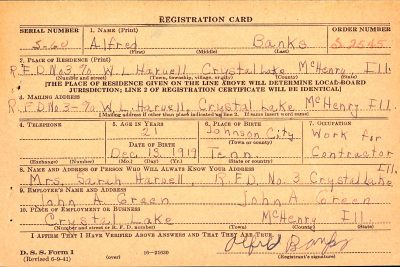 REGISTRATION CARD
SERIAL NUMBER 1. NAME (Print) ORDER NUMBER
Alfred Banks
(First) (Middle) (Last)
2. PLACE OF RESIDENCE (Print)
R.F.D No 3, % W. L. Harvell, Crystal Lake McHenry Ill.
(Number and street) (Town, township, village, or city) (County) (State)
[THE PLACE OF RESIDENCE GIVEN ON THE LINE ABOVE WILL DETERMINE LOCAL BOARD
JURISDICTION; LINE 2 OF REGISTRATION CERTIFICATE WILL BE IDENTICAL]
3. MAILING ADDRESS
R.F.D No 3- % W. L. Harvell, Crystal Lake McHenry Ill.
[Mailing address if other than place indicated on line 2. If same insert word same]
4. TELEPHONE 5. AGE IN YEARS 6. PLACE OF BIRTH 7. OCCUPATION
21 Johnson City Work for
DATE OF BIRTH (Town or county)
Dec 13 1919 Tenn Contractor
(Exchange) (Number) (Mo.) (Day) (Yr.) (State or country) Ill
8. NAME AND ADDRESS OF PERSON WHO WILL ALWAYS KNOW YOUR ADDRESS
Mrs. Sarah Harvell, R.F.D. No. 3 Crystal Lake
9. EMPLOYER'S NAME AND ADDRESS
John A Green John A Green
10. PLACE OF EMPLOYMENT OR BUSINESS
Crystal Lake McHenry Ill
(Number and street or R. F. D. number) (Town) (County) (State)
I AFFIRM THAT I HAVE VERIFIED ABOVE ANSWERS AND THAT THEY ARE TRUE.
D. S. S. Form 1 Alfred Banks
(Revised 6-9-41) (over) 16-21630